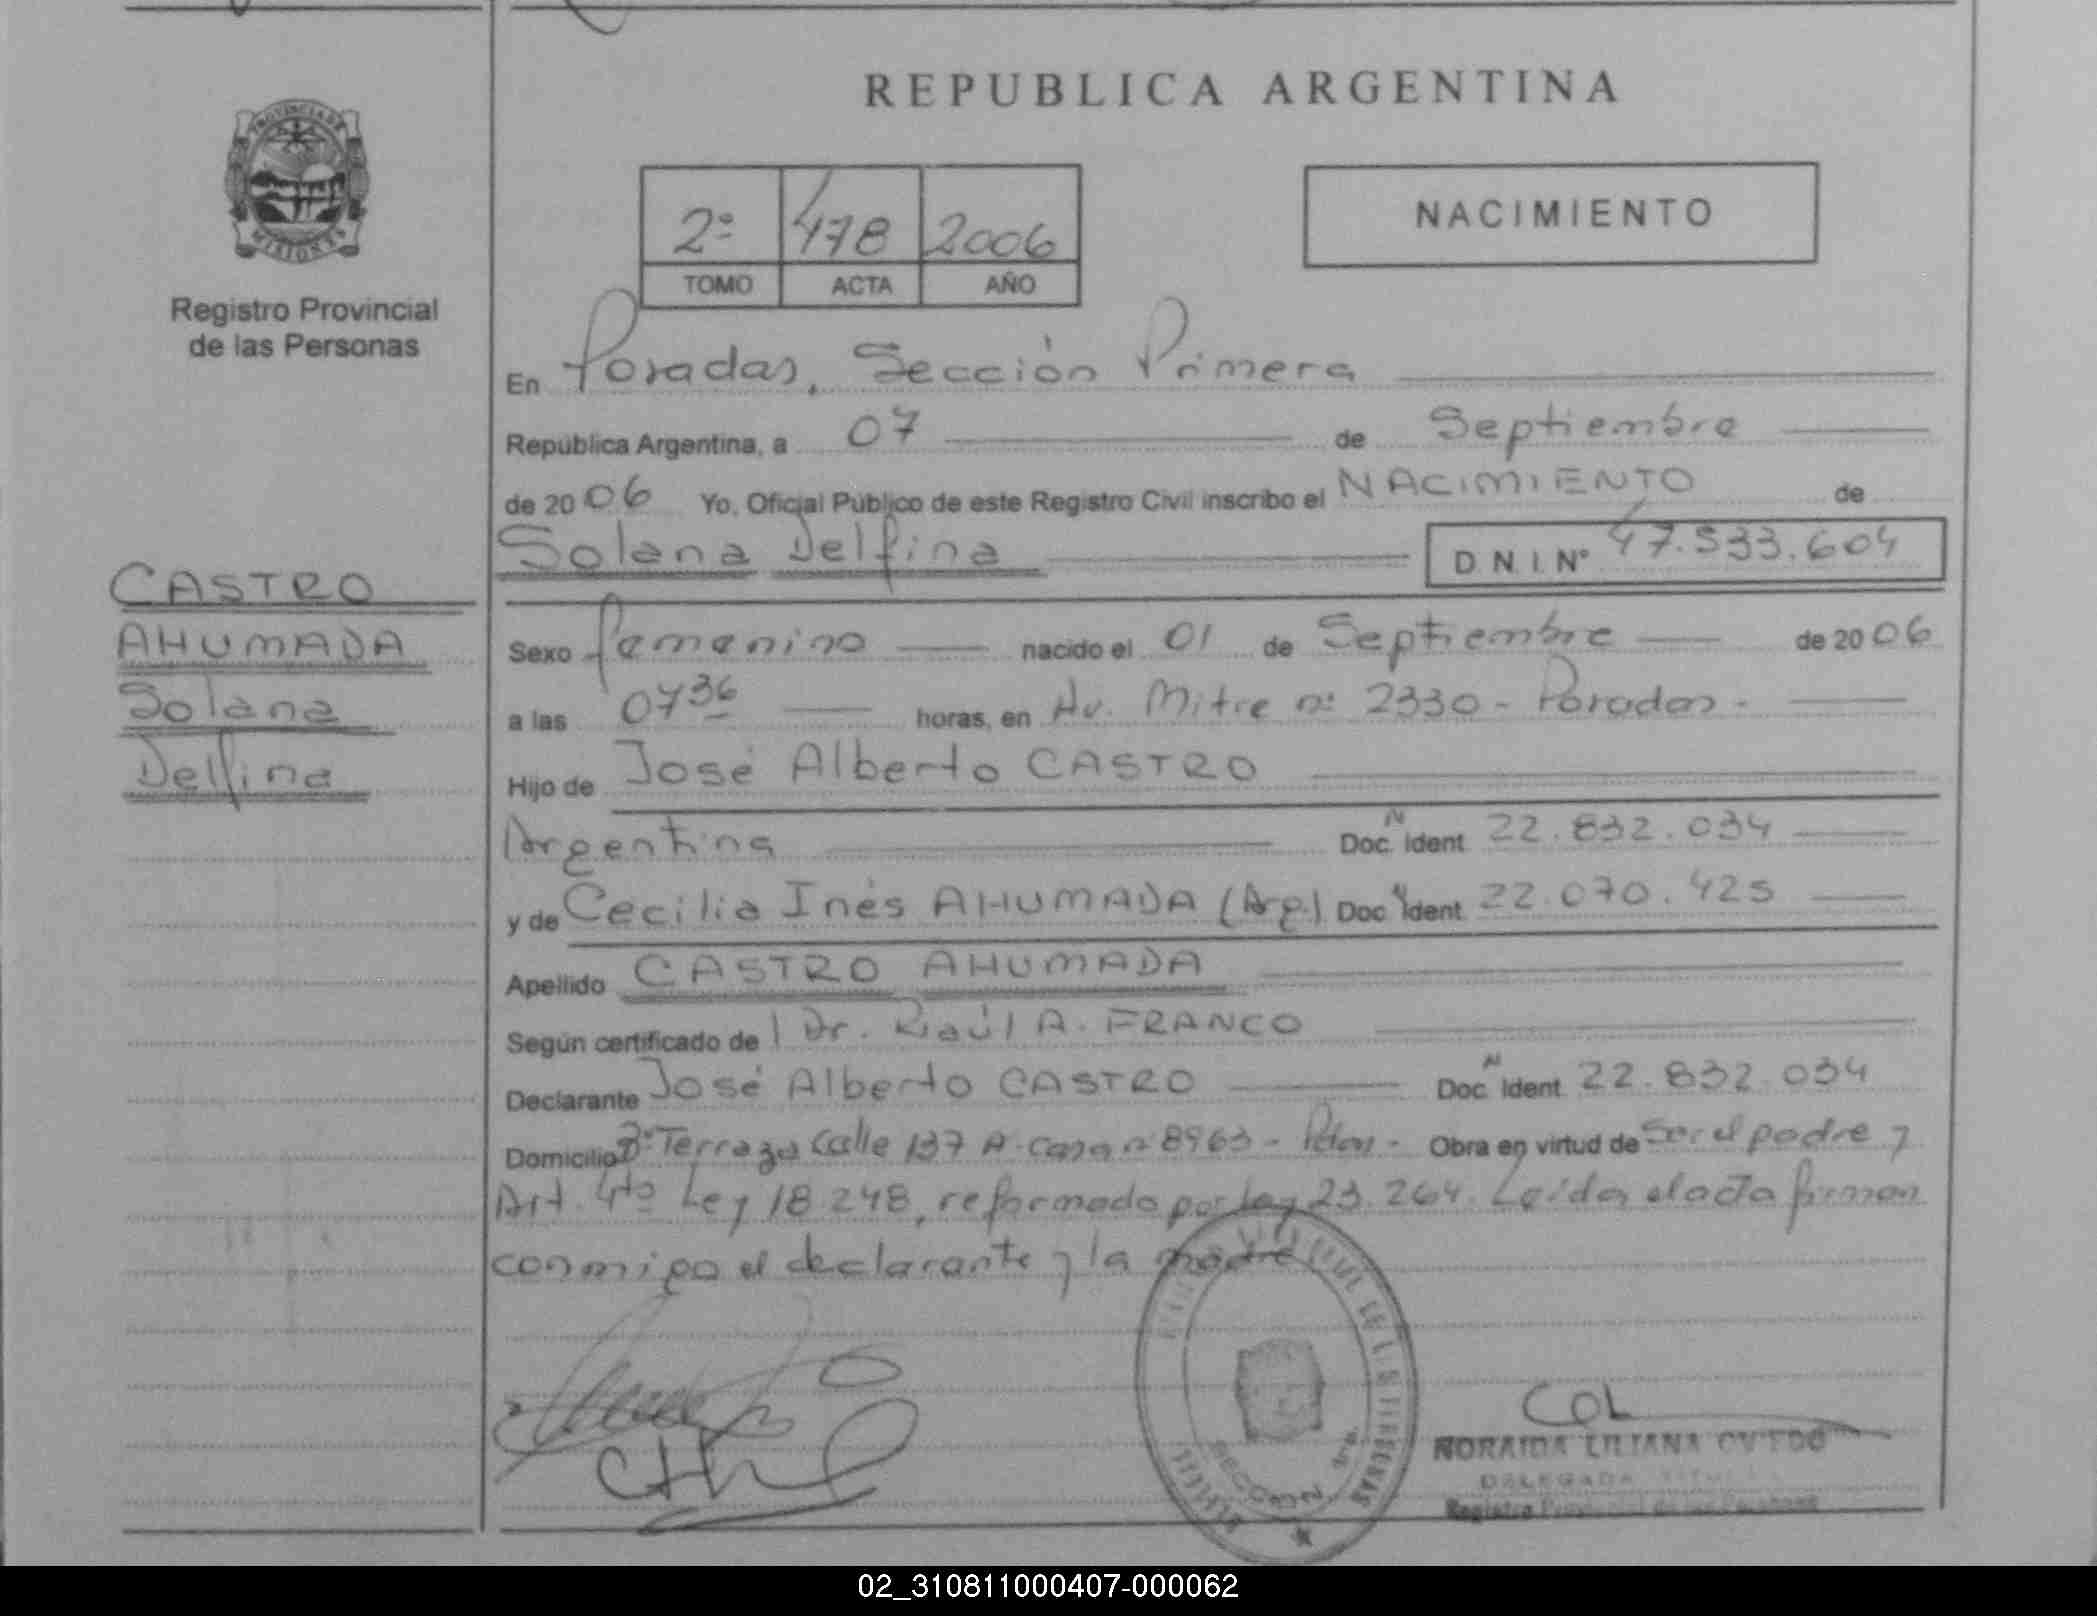 REPUBLICA ARGENTINA
PROVINCIA DE
MISIONES
Registro Provincial
de las Personas
2º 478 2006
TOMO ACTA AÑO
NACIMIENTO
En Posadas, Sección Primera
República Argentina, a 07 de Septiembre
de 2006 Yo, Oficial Público de este Registro Civil inscribo el NACIMIENTO de
Solana Delfina D.N.I. Nº 47.533.604
CASTRO
AHUMADA
Solana
Delfina
Sexo femenino nacido el 01 de Septiembre de 2006
a las 07 36 horas, en Av. Mitre nº 2330 - Posadas -
Hijo de José Alberto CASTRO
Argentina Doc. N Ident. 22.832.034
y de Cecilia Inés AHUMADA (Arg.) Doc. N Ident. 22.070.425
Apellido CASTRO AHUMADA
Según certificado de l Dr. Raúl A. FRANCO
Declarante José Alberto CASTRO Doc. N Ident. 22.832.034
Domicilio Bº Terrazas Calle 137 A - casa nº 8963 - Pdas - Obra en virtud de ser el padre y
Art. 4to Ley 18.248, reformado por ley 23.264. Leída el acta firman
conmigo el declarante y la madre
SECCION 1ra.
NORAIDA LILIANA OVIEDO
DELEGADA TITULAR
Registro Provincial de las Personas
02_310811000407-000062